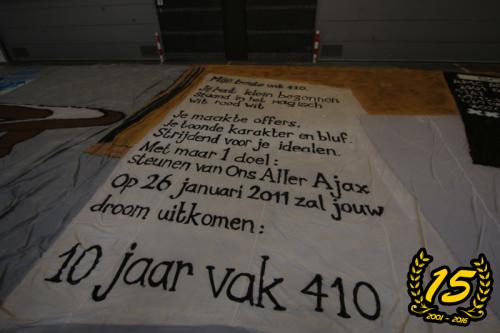 Mijn beste vak 410,
Jij bent klein begonnen
Staand in het magisch
wit rood wit
Je maakte offers,
Je toonde karakter en bluf.
Strijdend voor je idealen.
Met maar 1 doel:
steunen van Ons Aller Ajax
Op 26 januari 2011 zal jouw
droom uitkomen:
10 jaar vak 410
15
2001 - 2016